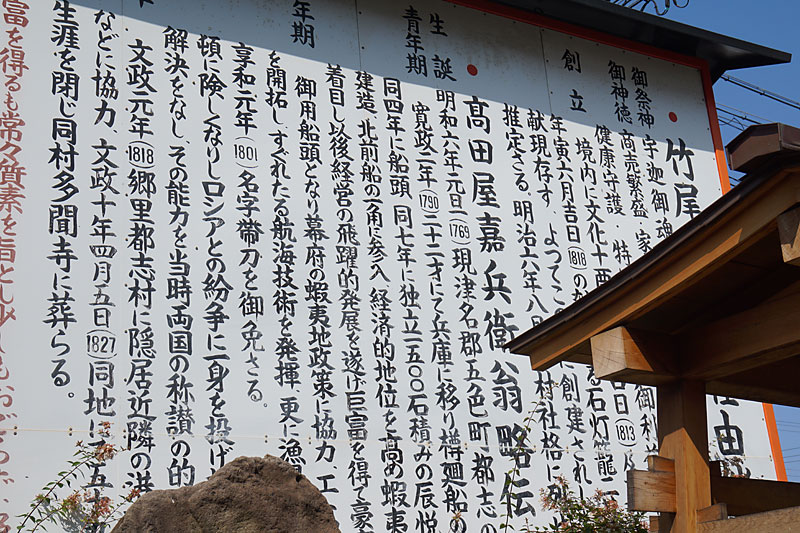 竹尾
由
御祭神 宇迦御魂
御神徳 商売繁盛・家
健康守護・特
創立 境内に文化十酉
年寅六月吉日(1818)の
献現存す、よってこ
推定さる、明治六年八月
髙田屋嘉兵衛翁略伝
生誕 明和六年元旦(1769)現津名郡五色町都志の
青年期 寛政二年(1790)二十二才にて兵庫に移り樽廻船の
同四年に船頭、同七年に独立一五〇〇石積みの辰悦
建造、北前船の一角に参入、経済的地位を高め蝦夷
着目し以後経営の飛躍的発展を遂げ巨富を得て豪
年期 御用船頭となり幕府の蝦夷地政策に協力、エ
を開拓し、すぐれたる航海技術を発揮、更に漁
享和元年(1801)名字帯刀を御免さる。
頃に険しくなりしロシアとの紛争に一身を投げ
解決をなし、その能力を当時両国の称讃の的
文政元年(1818)郷里都志村に隠居近隣の港
などに協力、文政十年四月五日(1827)同地に五十
生涯を閉じ同村多聞寺に葬らる。
富を得るも常々質素を旨とし少しもおごらず、